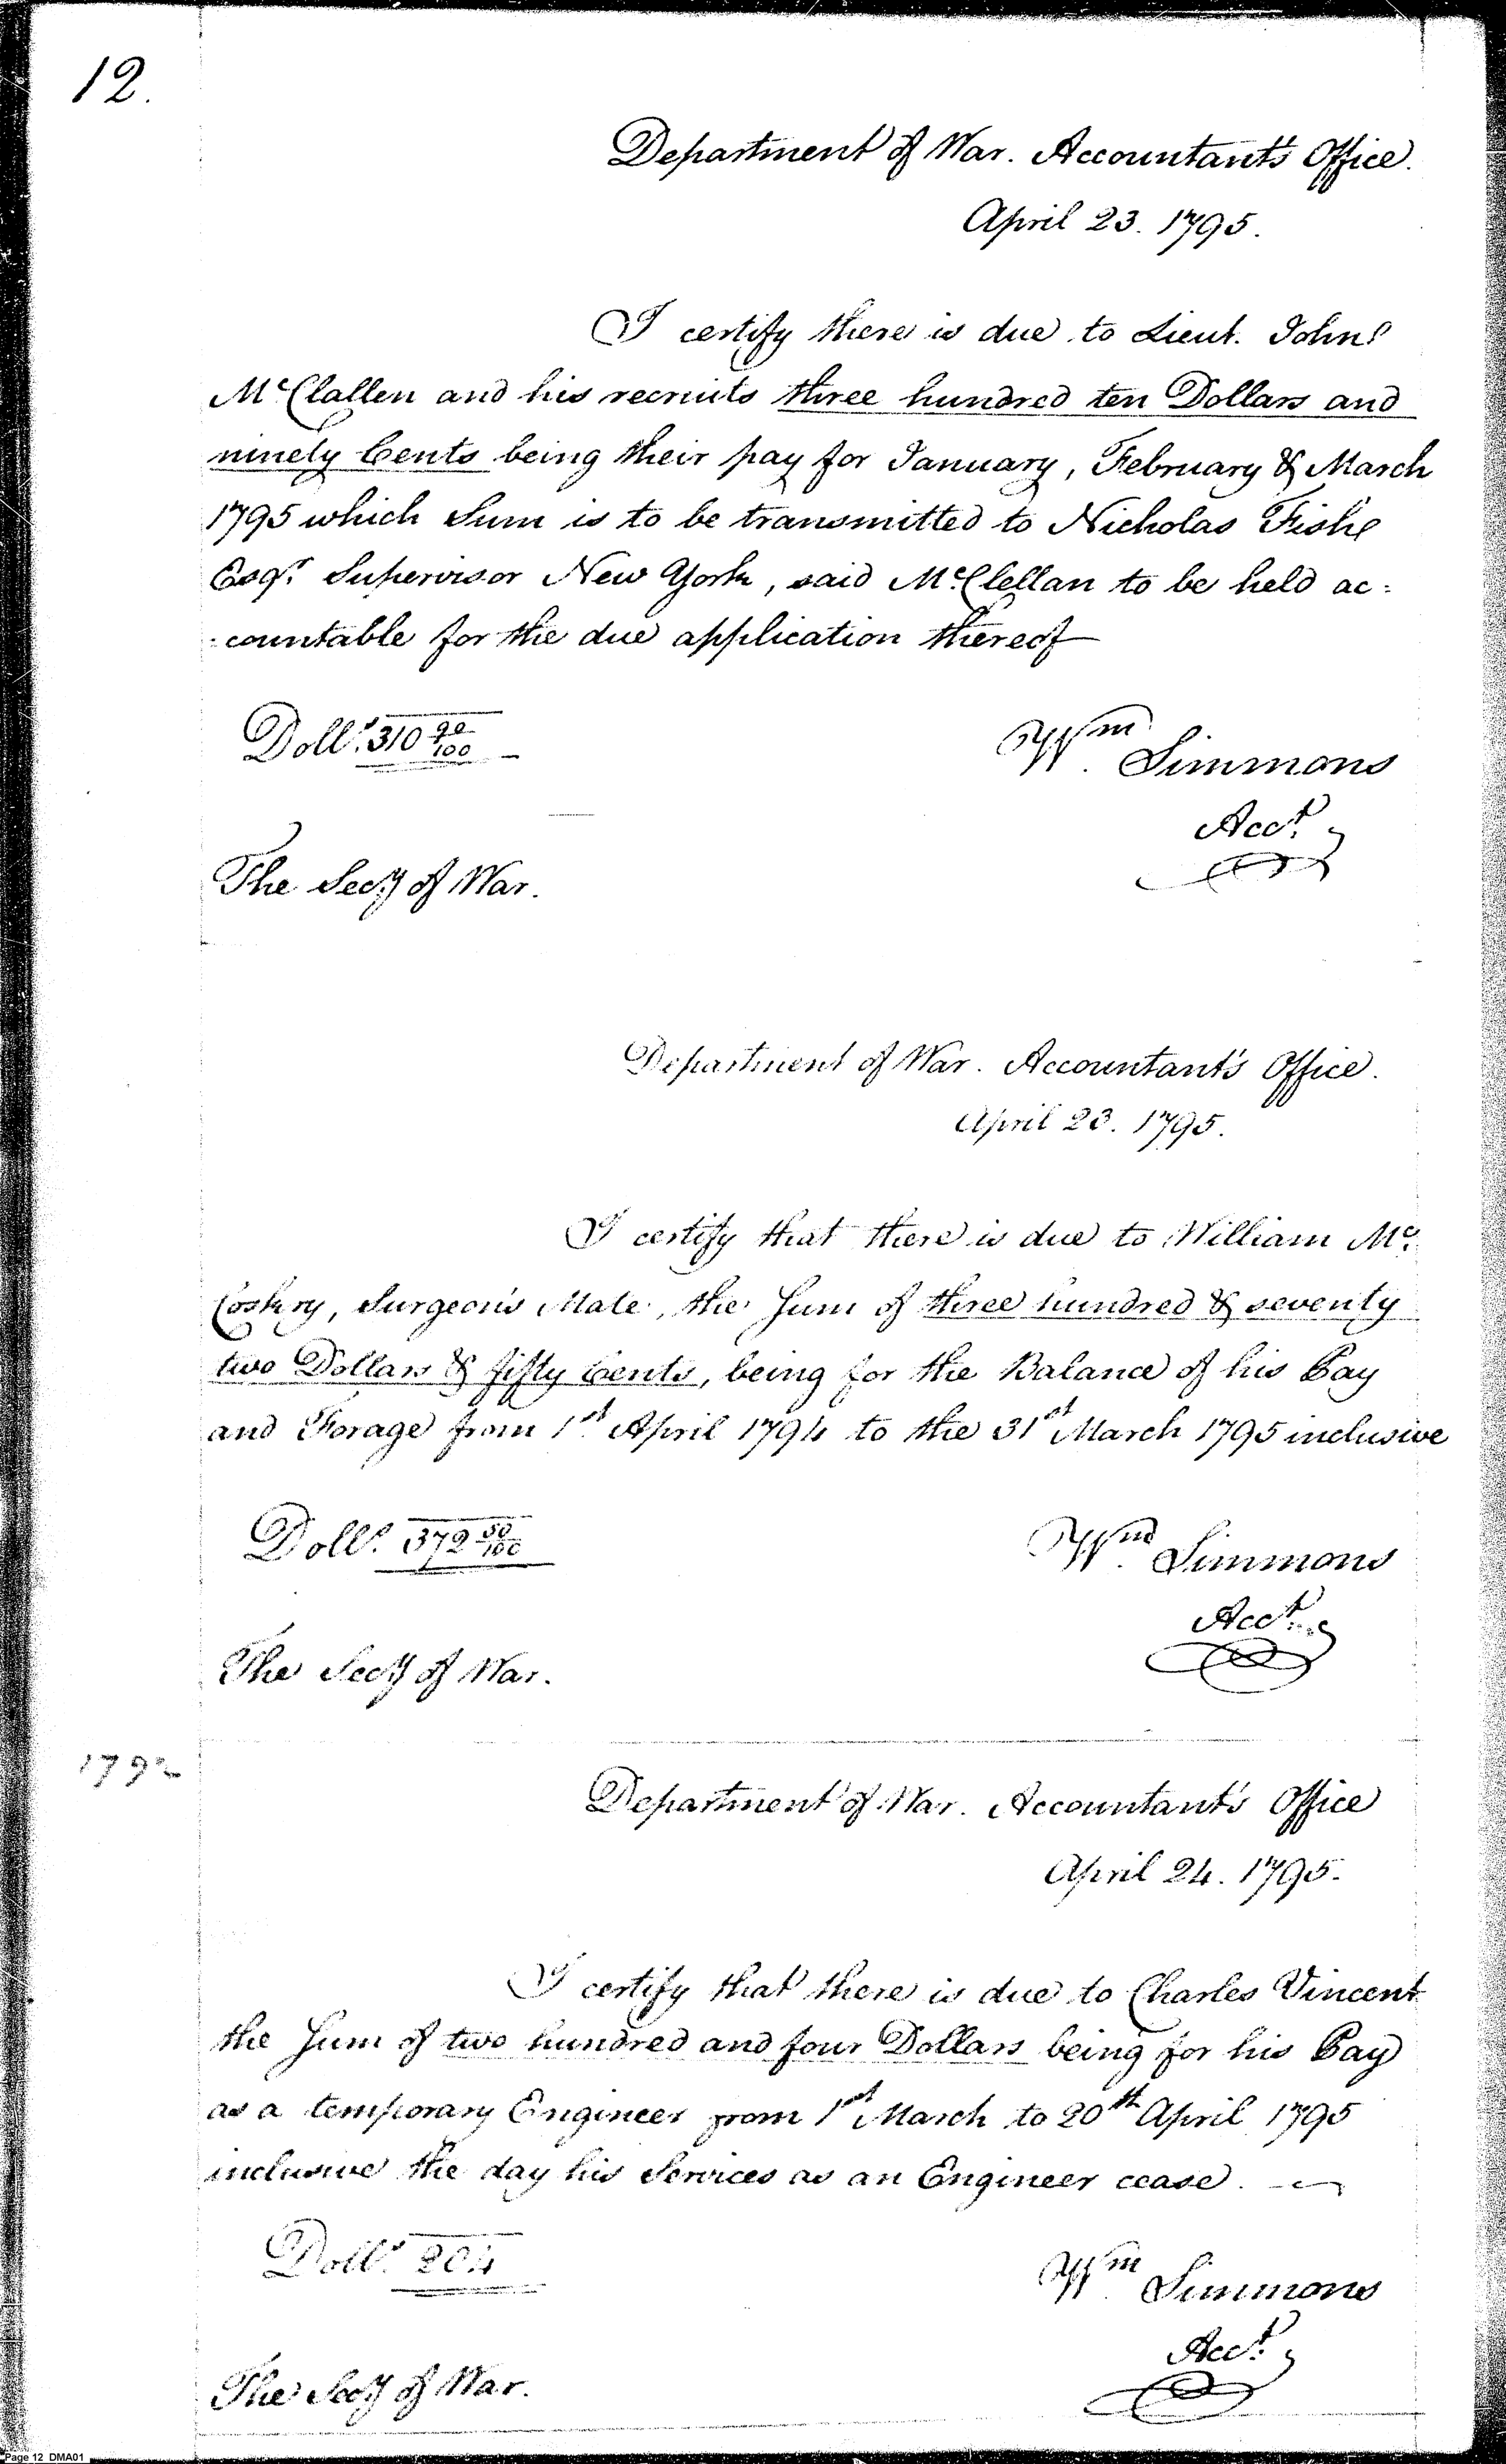 12.
Department of War. Accountant's Office.
April 23. 1795.
I certify there is due to Lieut. John
McClallen and his recruits three hundred ten Dollars and
ninety Cents being their pay for January, February & March
1795 which Sum is to be transmitted to Nicholas Fish
Esqr. Supervisor New York, said McClellan to be held ac=
=countable for the due application thereof
Dolls. 310 90/100
Wm. Simmons
Acct.
The Secy of War.
Department of War. Accountant's Office.
April 23. 1795.
I certify that there is due to William Mc.
Coskry, Surgeon's Mate, the Sum of three hundred & seventy
two Dollars & fifty Cents, being for the Balance of his Pay
and Forage from 1st. April 1794 to the 31st March 1795 inclusive
Dolls. 372 50/100
Wm. Simmons
Acct.
The Secy of War.
Department of War. Accountant's Office
April 24. 1795.
I certify that there is due to Charles Vincent
the Sum of two hundred and four Dollars being for his Pay
as a temporary Engineer from 1st March to 20th April 1795
inclusive the day his Services as an Engineer cease.
Dolls. 204
Wm. Simmons
Acct.
The Secy of War.
Page 12 DMA01